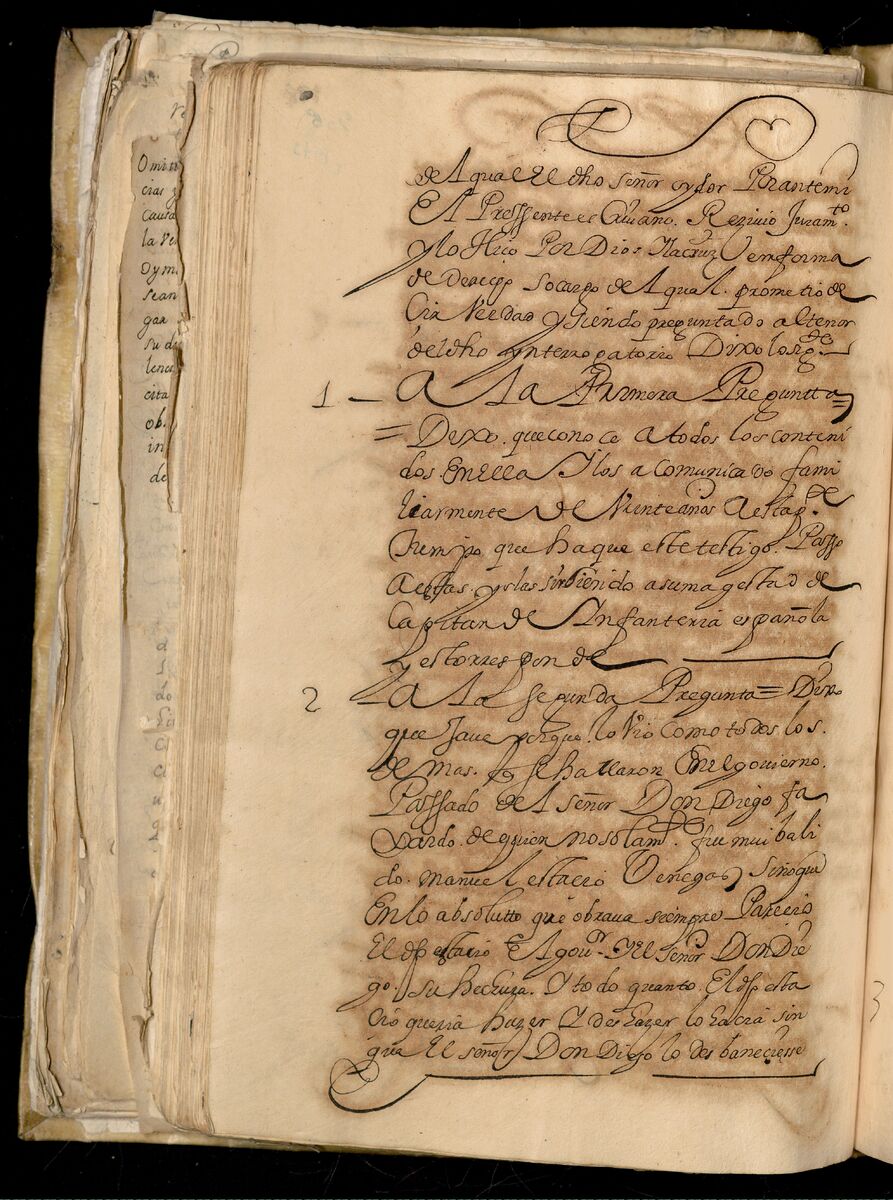 del qual El dho señor oydor Por antemi
El Pressente escriuano. Reziuio Juramto.
y lo Hiço Por Dios Y la cruz en forma
de Derecho so cargo del qual. prometio de
Cir Verdad y siendo preguntado al tenor
del dho ynterrogatorio Dixo lo sigte
1 — A la Primera Pregunta
= Dixo. que conoce a todos los conteni
dos En ella Y los a comunicado fami
liarmente de Veinte años a esta pte
Tiempo que ha que este testigo. Passo
a estas yslas sirbiendo a su magestad de
Capitan de Infanteria española
y esto rresponde
2 — A la segunda Pregunta = Dixo
que saue porque. lo Vio como todos los.
de mas. q se hallaron En el gouierno.
Passado del señor Don Diego fa
xardo. de quien no solamte. fue mui bali
do. manuel estacio Venegas sino que
En lo absolutto que obraua siempre Parecio
El dho estacio El gour. Y El señor Don Die
go. su hechura. Y todo quanto. El dho esta
cio queria hazer Y deshazer lo hacia sin
que El señor Don Diego lo desbaneciesse
Omiti
cias y
Causa
la Ve
sean
gar
su d
lenc
cita
ob.
in
de
3